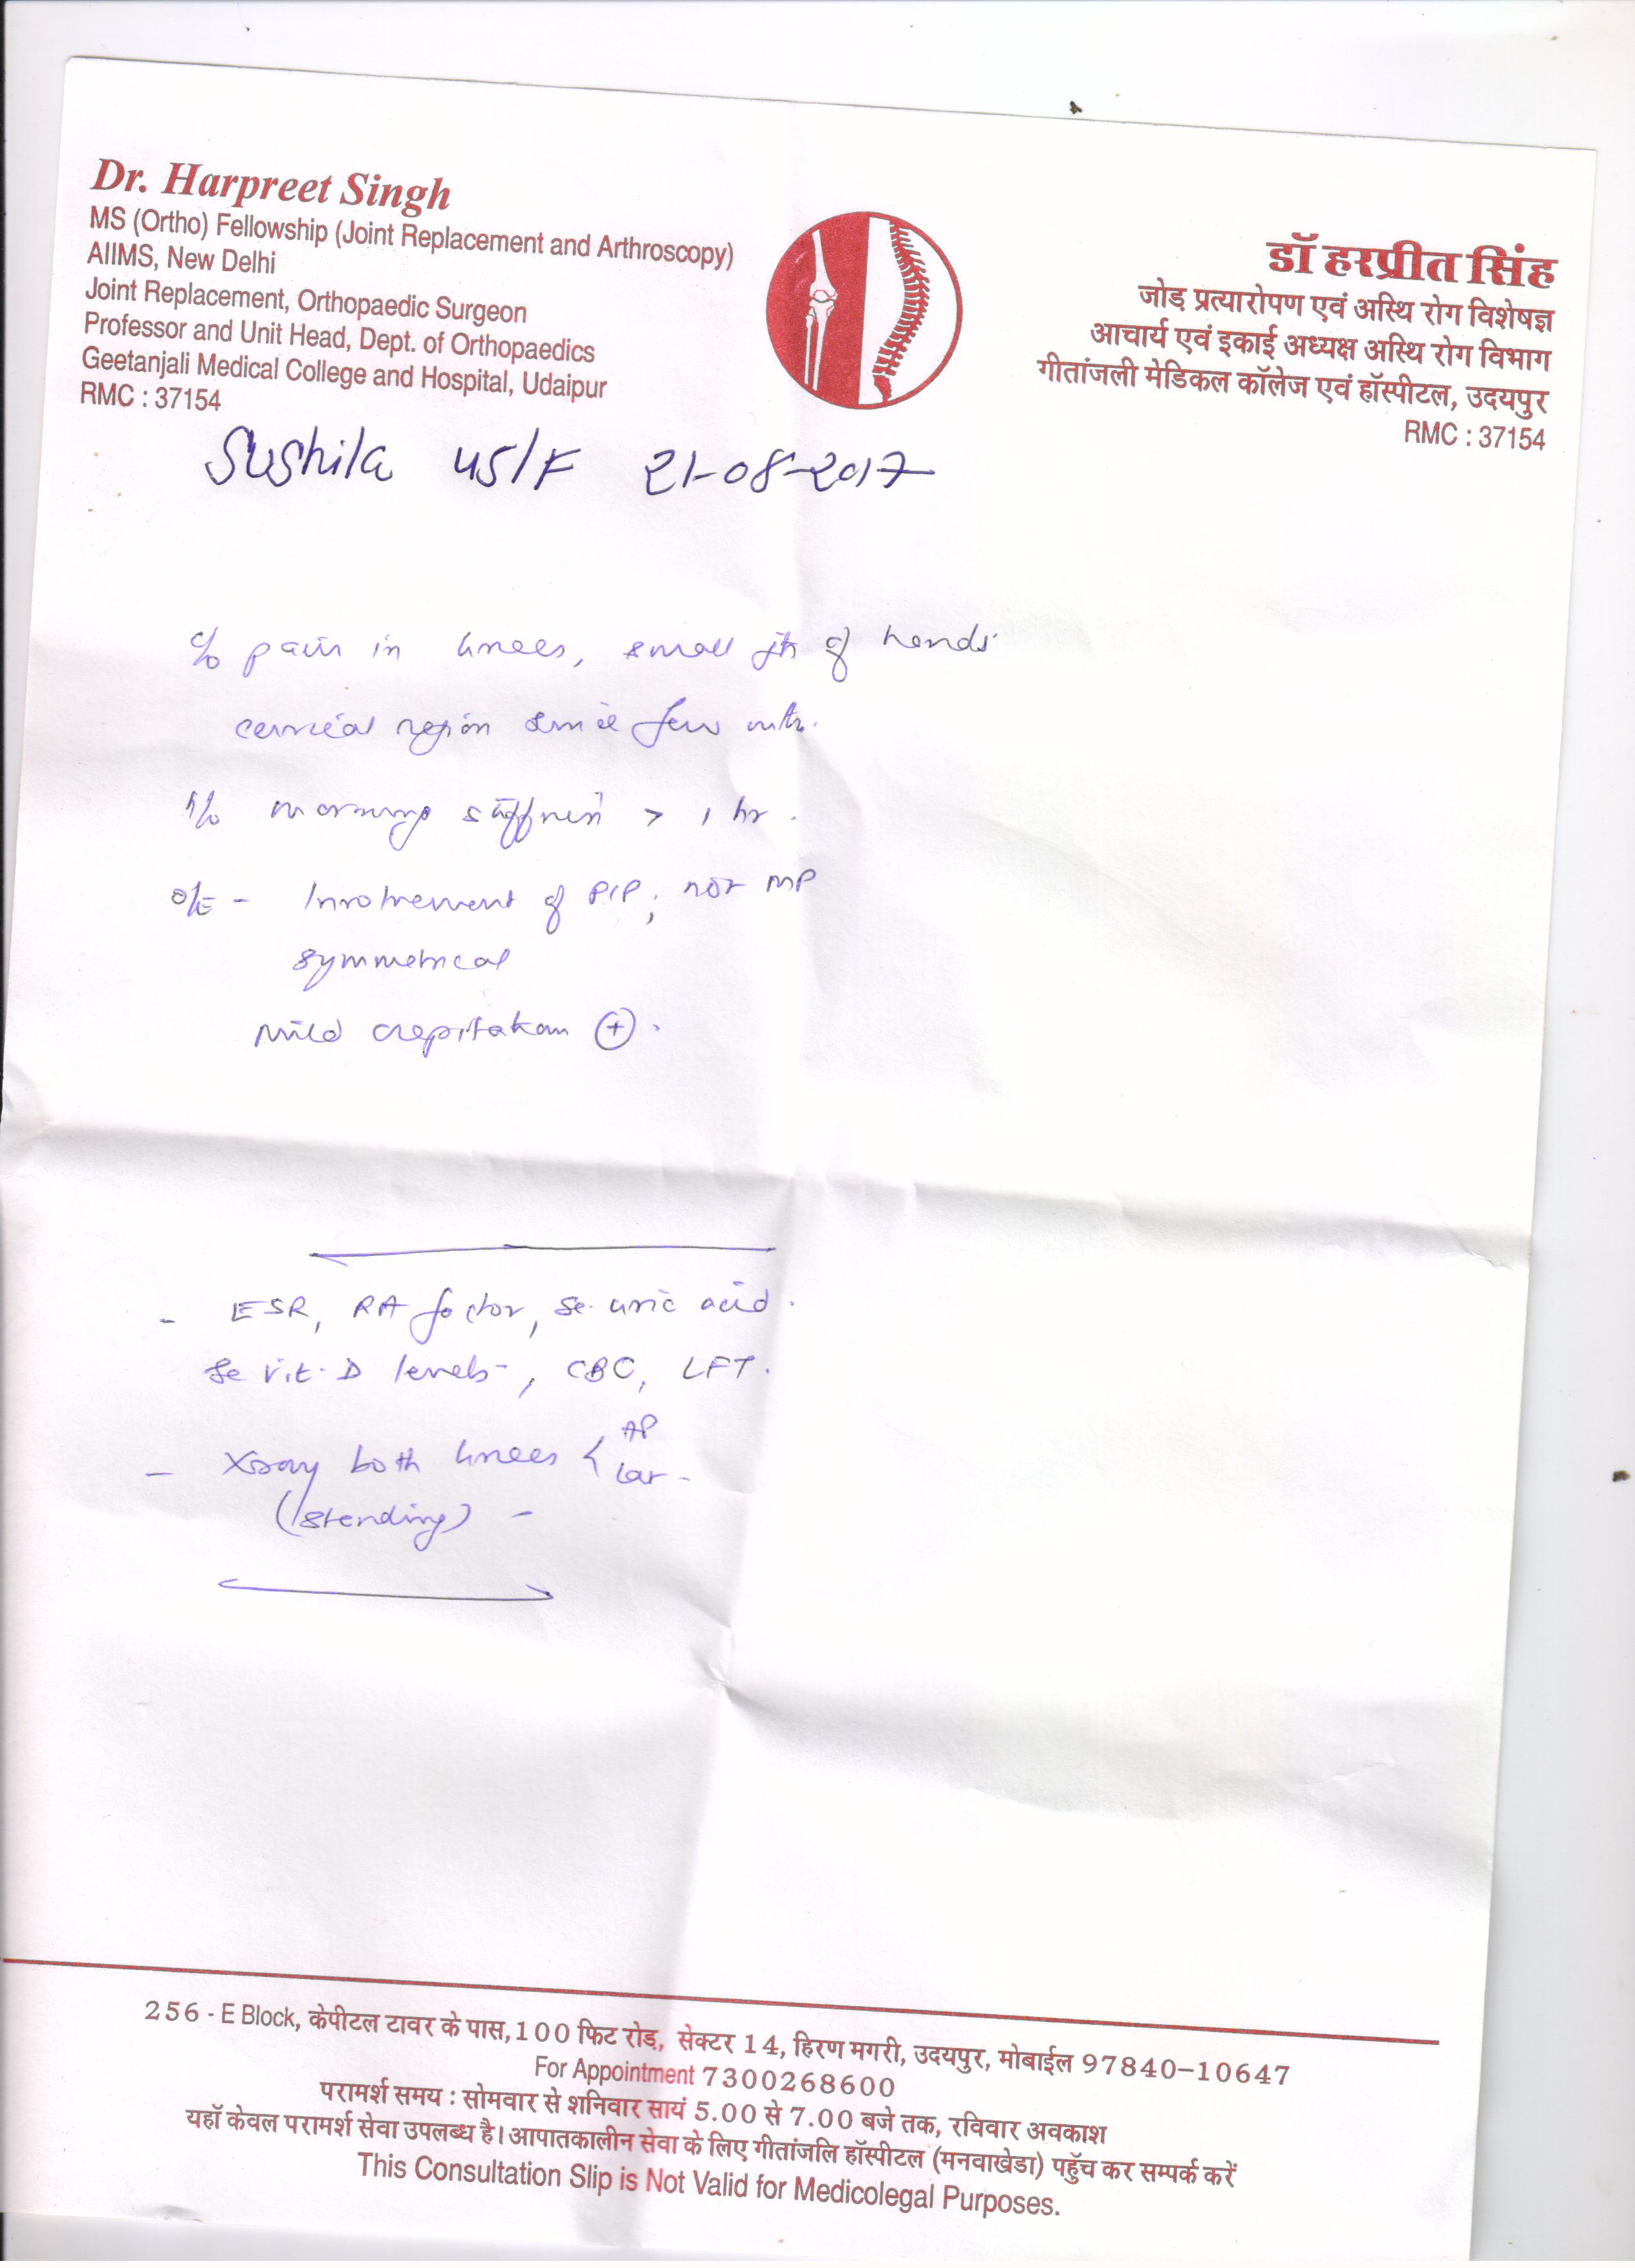 Dr. Harpreet Singh
MS (Ortho) Fellowship (Joint Replacement and Arthroscopy)
AIIMS, New Delhi
Joint Replacement, Orthopaedic Surgeon
Professor and Unit Head, Dept. of Orthopaedics
Geetanjali Medical College and Hospital, Udaipur
RMC : 37154
डॉ हरप्रीत सिंह
जोड़ प्रत्यारोपण एवं अस्थि रोग विशेषज्ञ
आचार्य एवं इकाई अध्यक्ष अस्थि रोग विभाग
गीतांजली मेडिकल कॉलेज एवं हॉस्पीटल, उदयपुर
RMC : 37154
Sushila 45/F 21-08-2017
c/o pain in knees, small jts of hands
cervical region since few mths.
h/o morning stiffness > 1 hr.
o/E - Involvement of PIP, not MP
symmetrical
Mild crepitation (+).
- ESR, RA factor, Se. uric acid.
Se Vit. D levels, CBC, LFT.
- Xray both knees < AP
Lat
(standing) -
256 - E Block, केपीटल टावर के पास, 100 फिट रोड, सेक्टर 14, हिरण मगरी, उदयपुर, मोबाईल 97840-10647
For Appointment 7300268600
परामर्श समय : सोमवार से शनिवार सायं 5.00 से 7.00 बजे तक, रविवार अवकाश
यहाँ केवल परामर्श सेवा उपलब्ध है। आपातकालीन सेवा के लिए गीतांजलि हॉस्पीटल (मनवाखेडा) पहुँच कर सम्पर्क करें
This Consultation Slip is Not Valid for Medicolegal Purposes.